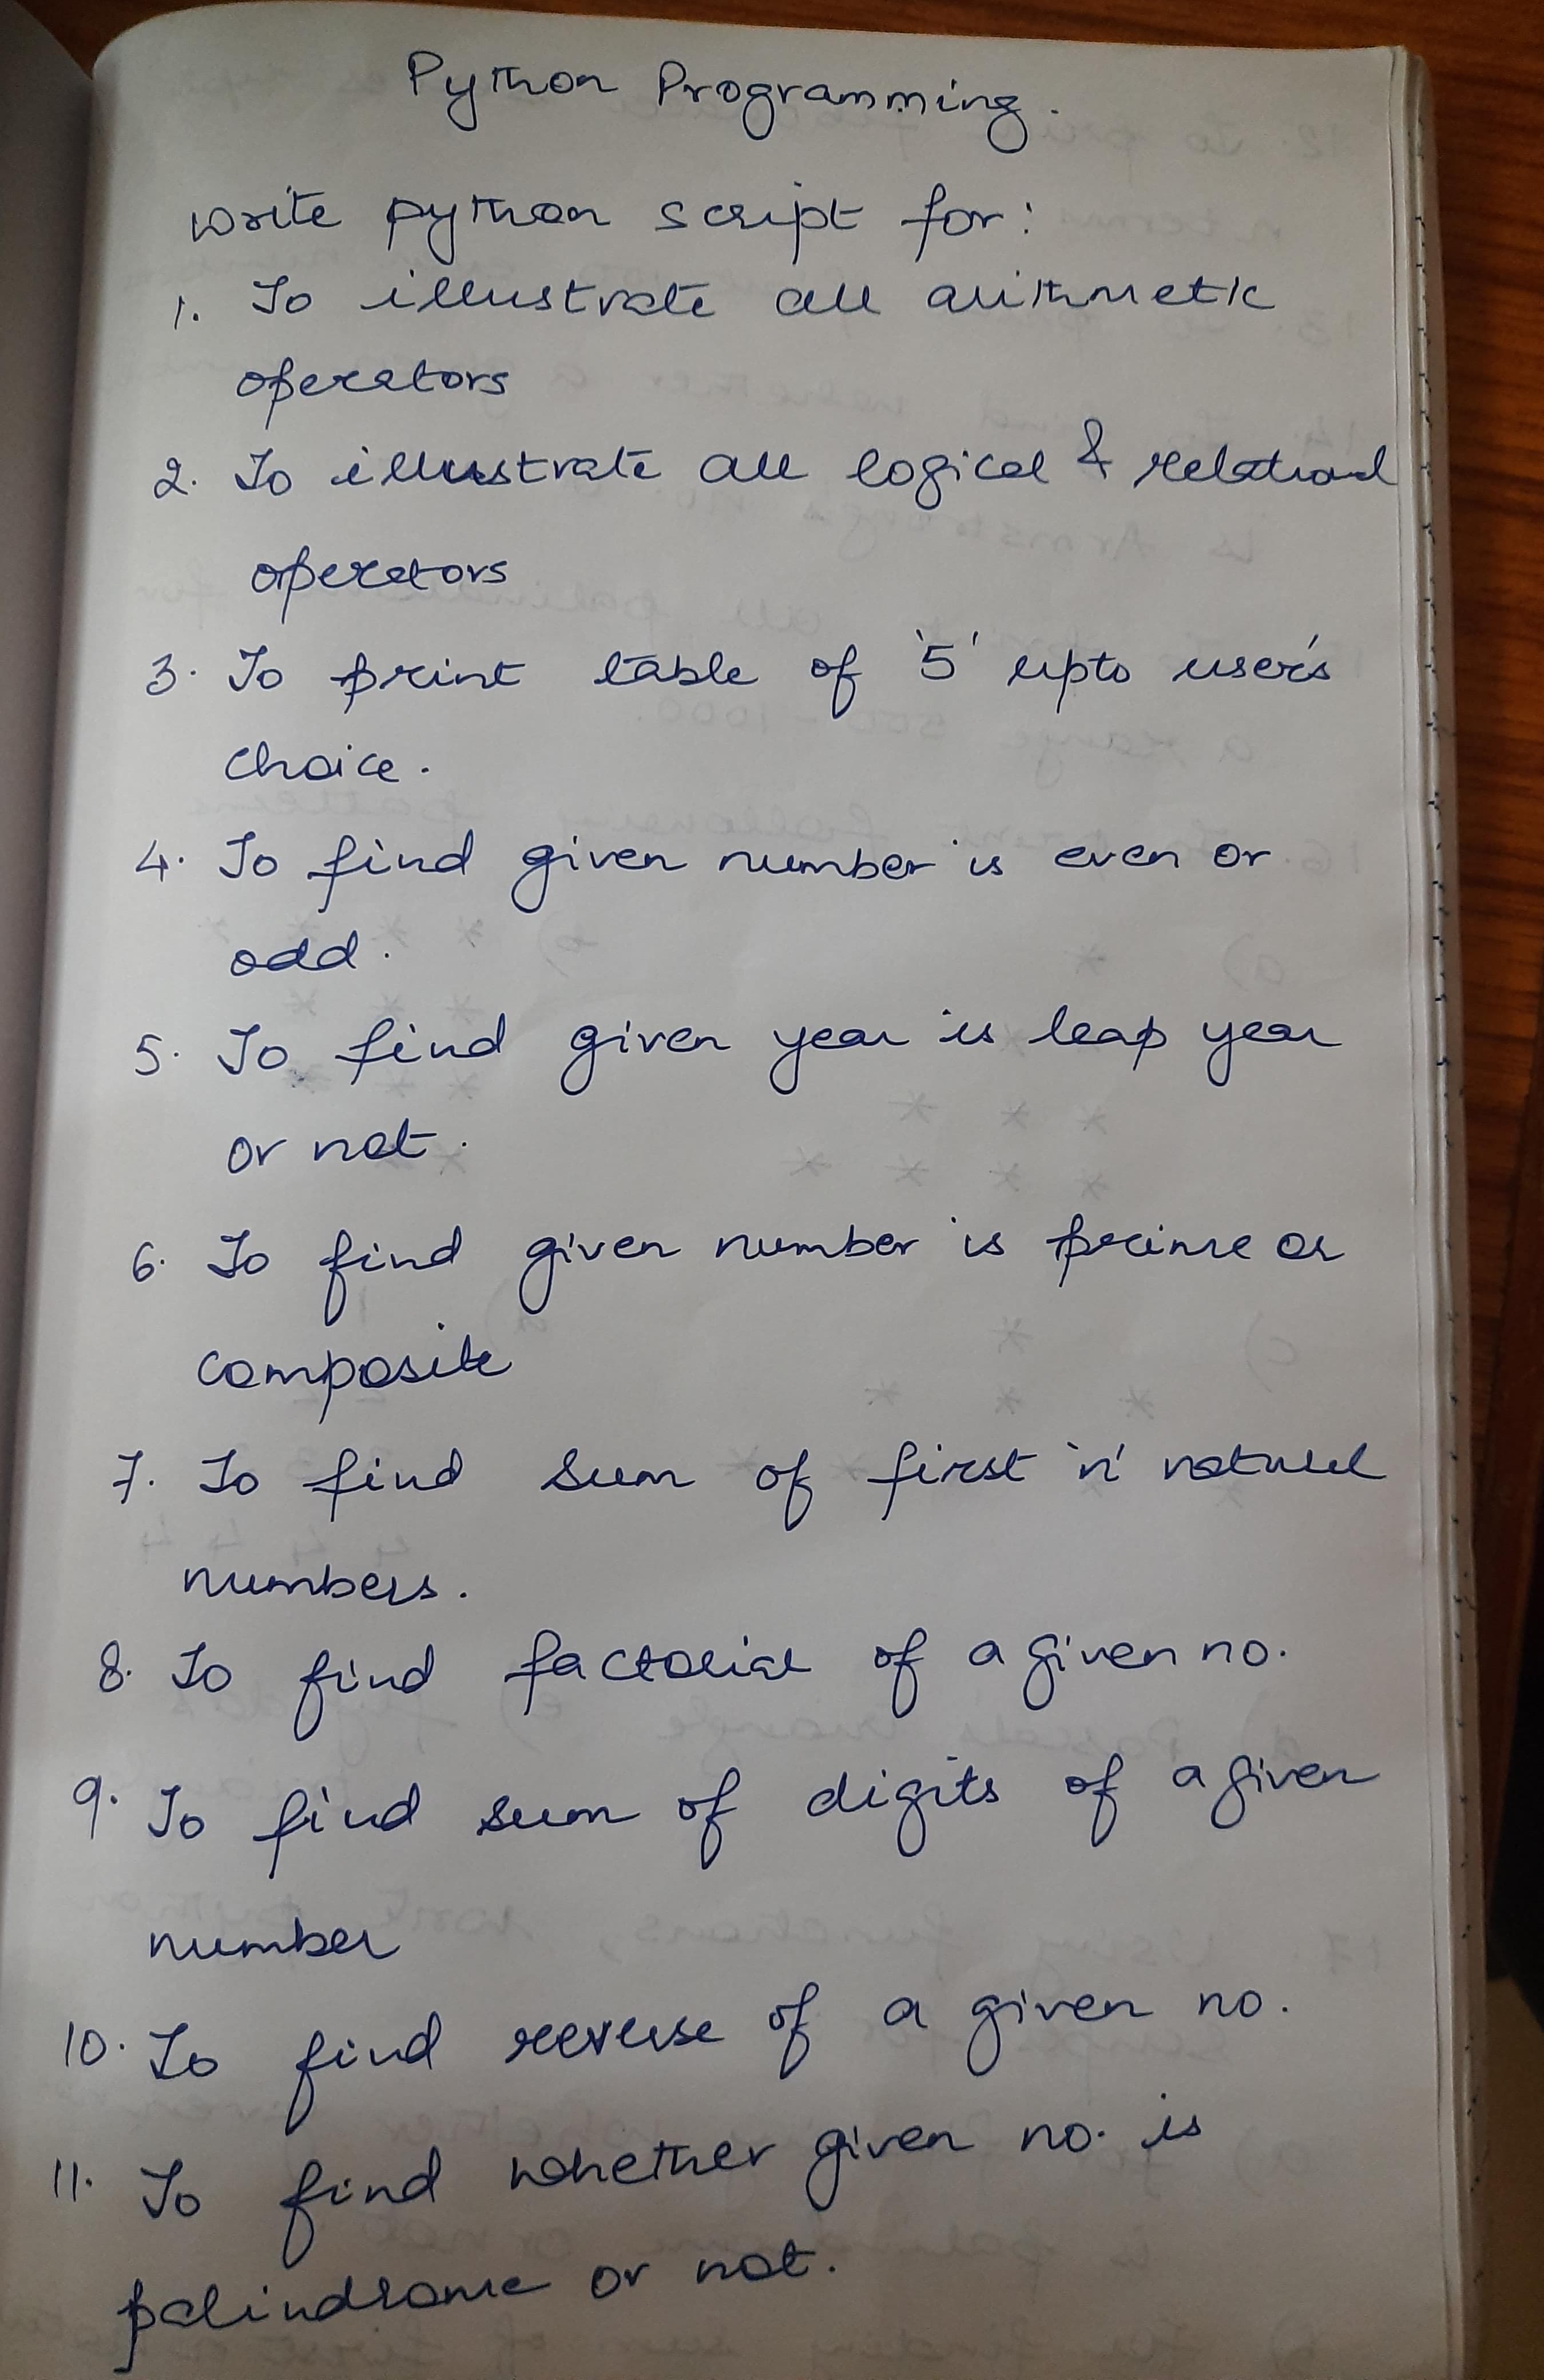 Python Programming.
Write python script for:
1. To illustrate all arithmetic
operators
2. To illustrate all logical & relational
operators
3. To print table of '5' upto user's
choice.
4. To find given number is even or
odd.
5. To find given year is leap year
or not.
6. To find given number is prime or
composite
7. To find sum of first 'n' natural
numbers.
8. To find factorial of a given no.
9. To find sum of digits of a given
number
10. To find reverse of a given no.
11. To find whether given no. is
palindrome or not.